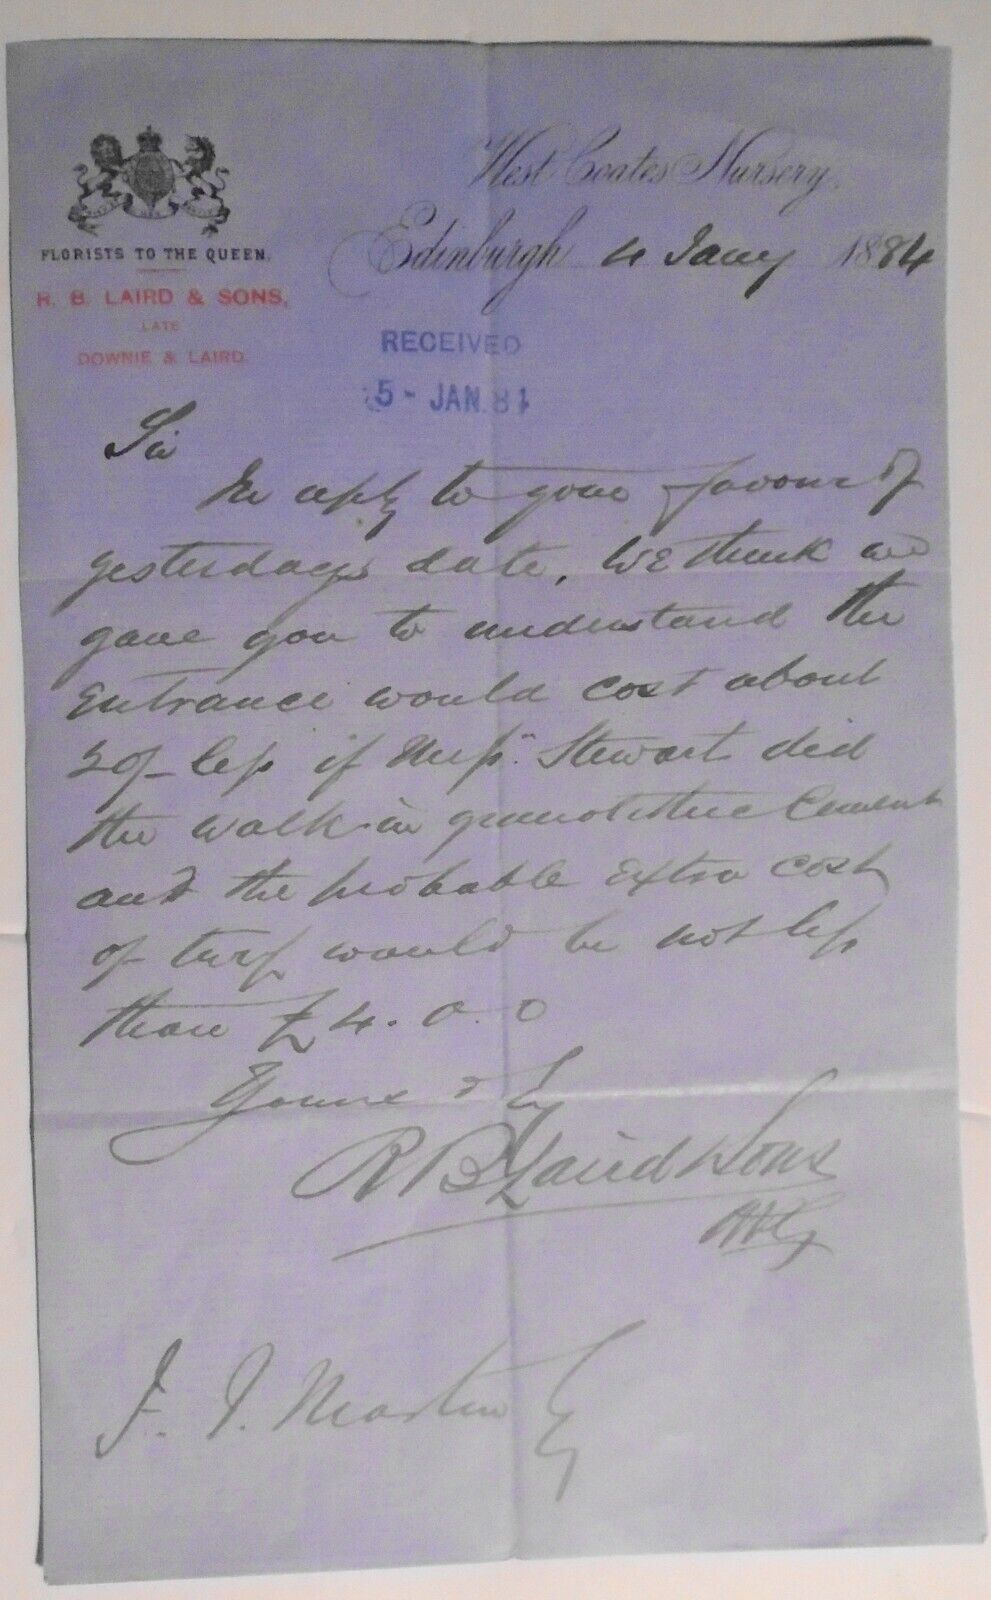 FLORISTS TO THE QUEEN.
R. B. LAIRD & SONS,
LATE
DOWNIE & LAIRD.
West Coates Nursery,
Edinburgh 4 Jany 1884
RECEIVED
5 - JAN. 84
Sir
In reply to your favour of
yesterdays date, We think we
gave you to understand the
Entrance would cost about
20/- less if Messrs. Stewart did
the walk in granolithic Cement
and the probable Extra cost
of turf would be not less
than £4. 0. 0
Yours
R B Laird & Sons
J. Martin Esq